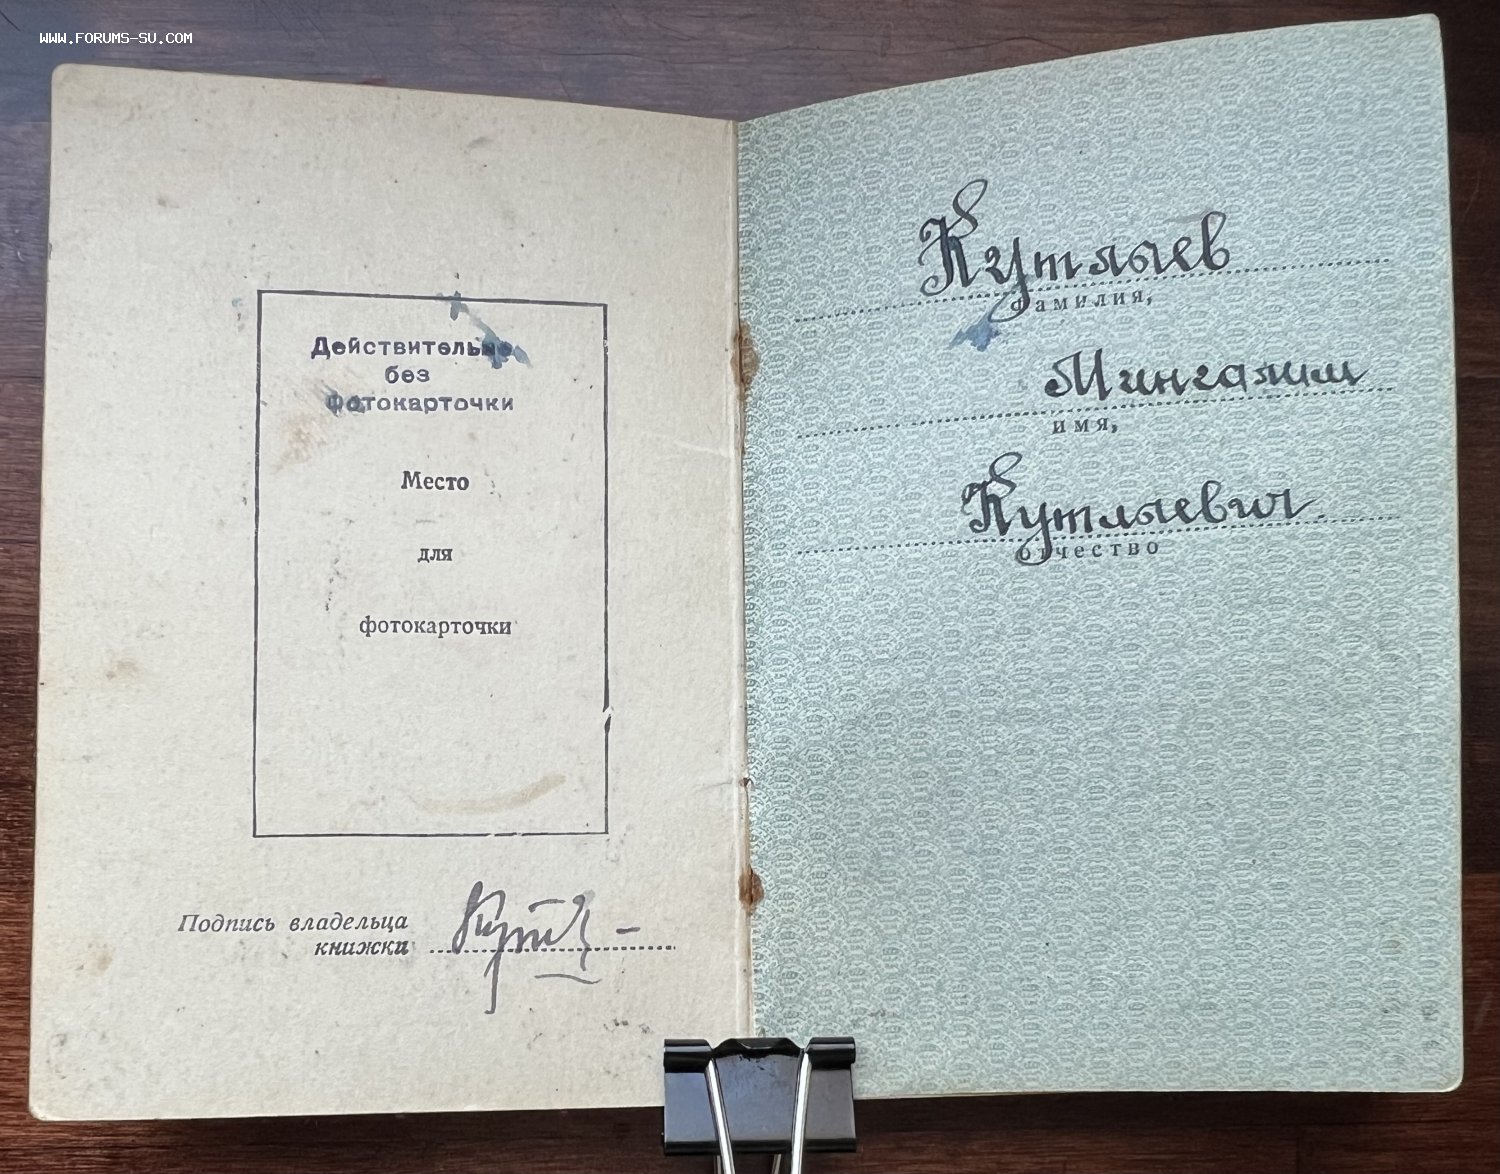 WWW.FORUMS-SU.COM
Действительно
без
фотокарточки
Место
для
фотокарточки
Подпись владельца
книжки
Кутлыев
фамилия,
Мингалим
имя,
Кутлыевич
отчество